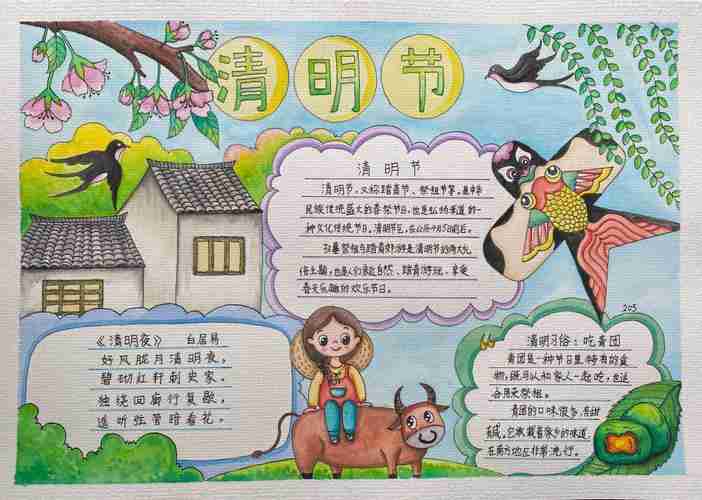 清明节
清明节
清明节，又称踏青节、祭祖节等，是中华
民族传统盛大的春祭节日，也是弘扬孝道的一
种文化传统节日。清明节气，在公历4月5日前后。
扫墓祭祖与踏青郊游是清明节的两大礼
俗主题，也是人们亲近自然、踏青游玩、享受
春天乐趣的欢乐节日。
205
《清明夜》 白居易
好风胧月清明夜，
碧砌红轩刺史家。
独绕回廊行复歇，
遥听弦管暗看花。
清明习俗：吃青团
青团是一种节日里特有的食
物，既可以和家人一起吃，也适
合用来祭祖。
青团的口味很多，有甜
有咸。它承载着家乡的味道，
在南方地区非常流行。